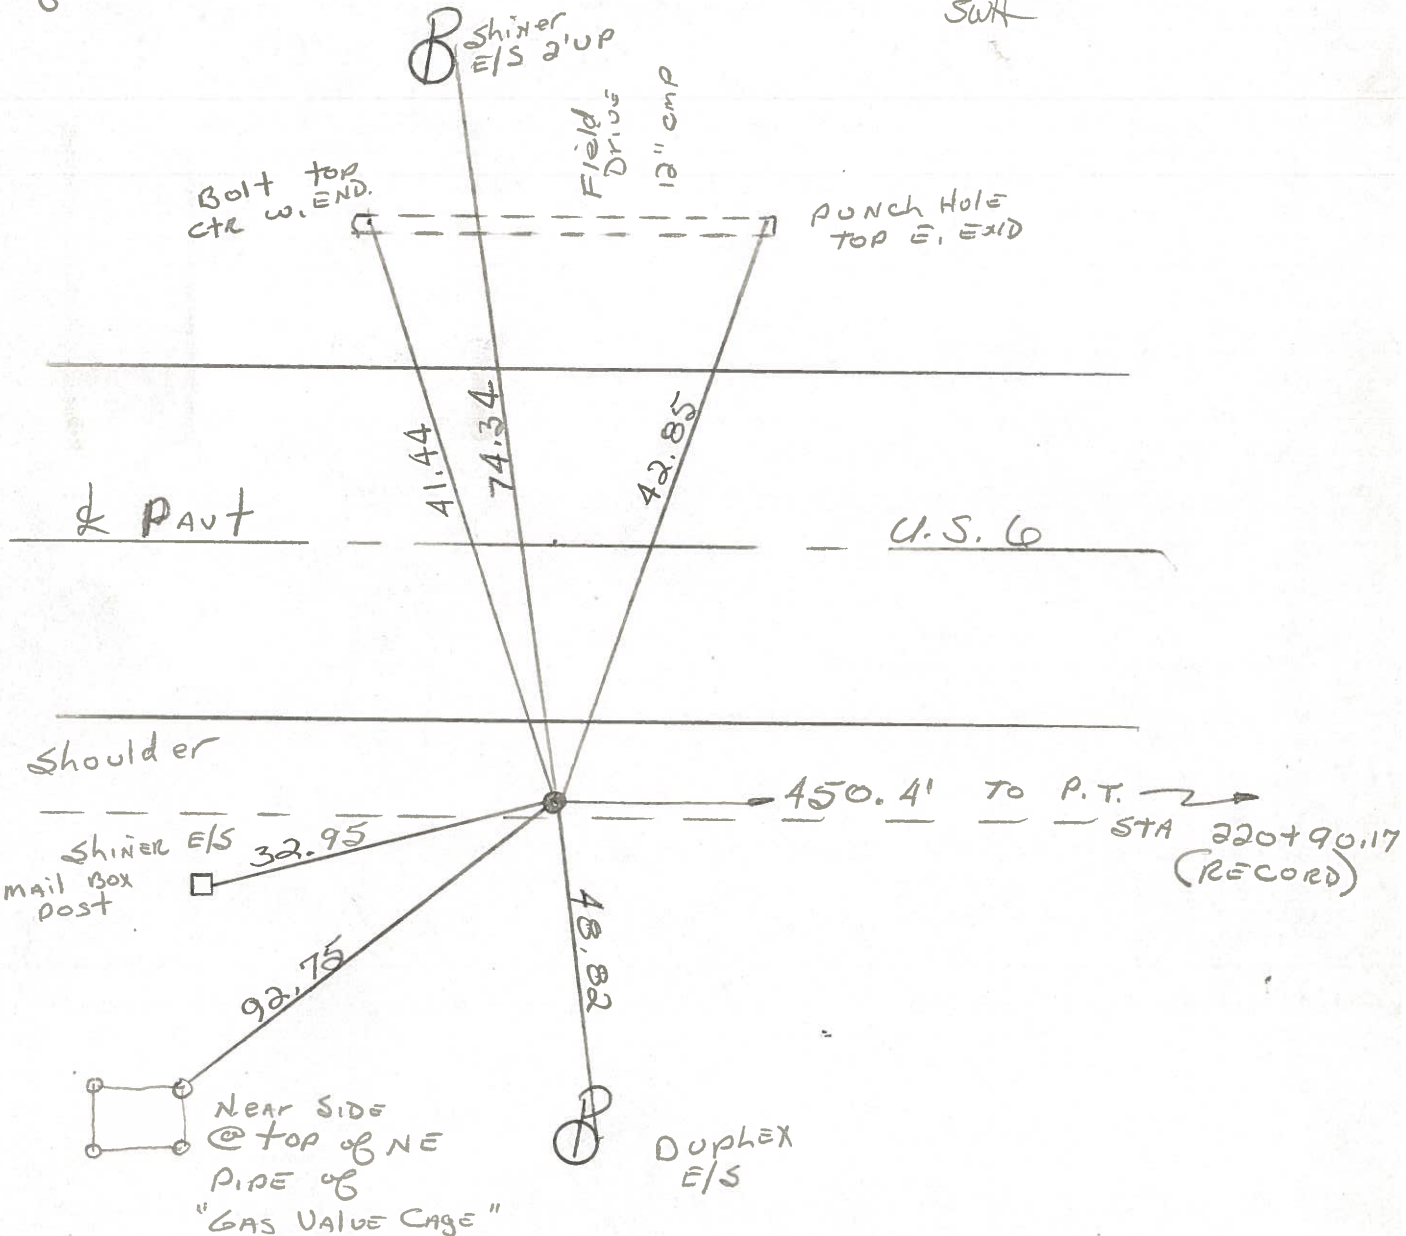 SWH
Shiner
E/S 2'UP
Field
Drive
12" cmp
Bolt top
ctr w. END.
PUNCH HOLE
TOP E. END
41.44
74.34
42.85
℄ PAVT
U.S. 6
Shoulder
450.4' TO P.T.
STA 220+90.17
(RECORD)
SHINER E/S
MAIL BOX
post
32.95
92.75
48.82
NEAR SIDE
@ TOP of NE
PIPE of
"GAS VALUE CAGE"
DUPLEX
E/S